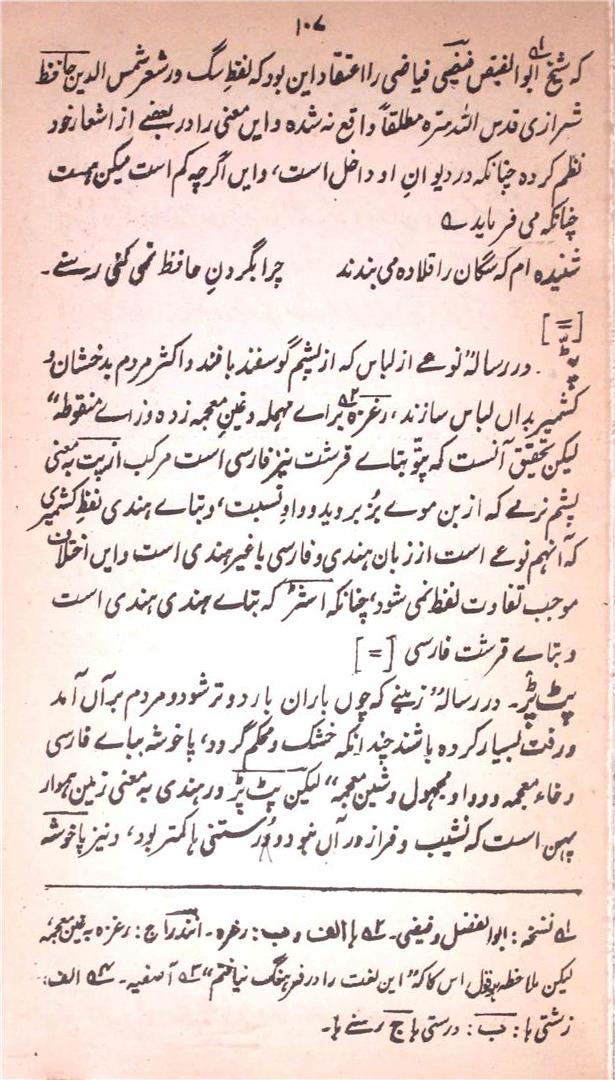 ۱۰۷
کہ شیخ ابوالفیض فیضی فیاضی را اعتقاد این بود کہ لفظِ سگ در شعر شمس الدین حافظ
شیرازی قدس اللہ سرہ مطلقاً واقع نہ شدہ و ایں معنی را در بعضے از اشعار خود
نظم کردہ چنانکہ در دیوانِ او داخل است، و ایں اگرچہ کم است لیکن ہست
چنانکہ می فرماید
شنیدہ ام کہ سگان را قلادہ می بندند    چرا بگردنِ حافظ نمی کنی رسنے۔
[=]
پٹّو۔ در رسالہ "نوعے از لباس کہ از پشیم گوسفند بافند و اکثر مردم بدخشان و
کشمیر بداں لباس سازند، رغزہ براے مہملہ و غینِ معجمہ زدہ و زاے منقوطہ"
لیکن تحقیق آنست کہ پتّو بتاے قرشت نیز فارسی است مرکب از پت بہ معنی
پشیم نرمے کہ از بن موے بُز بروید و واوِ نسبت، و بتاے ہندی لفظِ کشمیری
کہ آنہم نوعے است از زبان ہندی و فارسی یا غیر ہندی است و ایں اختلاف
موجب تفاوت لفظ نمی شود، چنانکہ اشٹر کہ بتاے ہندی ہندی است
و بتاے قرشت فارسی [=]
پٹ پڑ۔ در رسالہ "زمینے کہ چوں باران بارد و تر شود و مردم برآں آمد
و رفت بسیار کردہ باشند چندانکہ خشک و محکم گردد، پاخوشہ بباے فارسی
و خاء معجمہ و واو مجہول و شین معجمہ" لیکن پٹ پڑ در ہندی بہ معنی زمین ہموار
پہن است کہ نشیب و فراز در آں نبود و رُستنی ہا کمتر بود، و نیز پاخوشہ
۱؎ نسخہ: ابوالفضل و فیضی۔ ۲؎ ہا الف و ب: رخرہ۔ انندراج: رغزہ بہ غین معجمہ
لیکن ملاحظہ ہو قول اس کا کہ "این لغت را در فرہنگ نیافتم" ۳؎ آصفیہ۔ ۴؎ الف:
زشتی ہا: ب: درستی ہا ج رسنے ہا۔